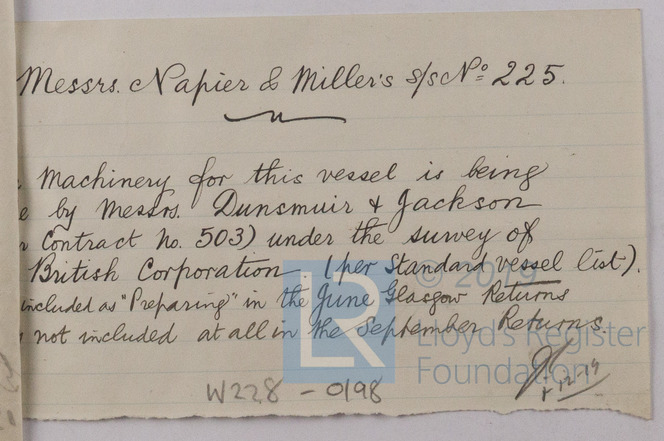 Messrs. Napier & Miller's s/s No: 225.
Machinery for this vessel is being
e by Messrs. Dunsmuir & Jackson
Contract No. 503) under the survey of
British Corporation (per Standard vessel list).
included as "Preparing" in the June Glasgow Returns
not included at all in the September Returns
© 2019
LR
Lloyd's Register
Foundation
12-19
W228 - 0198